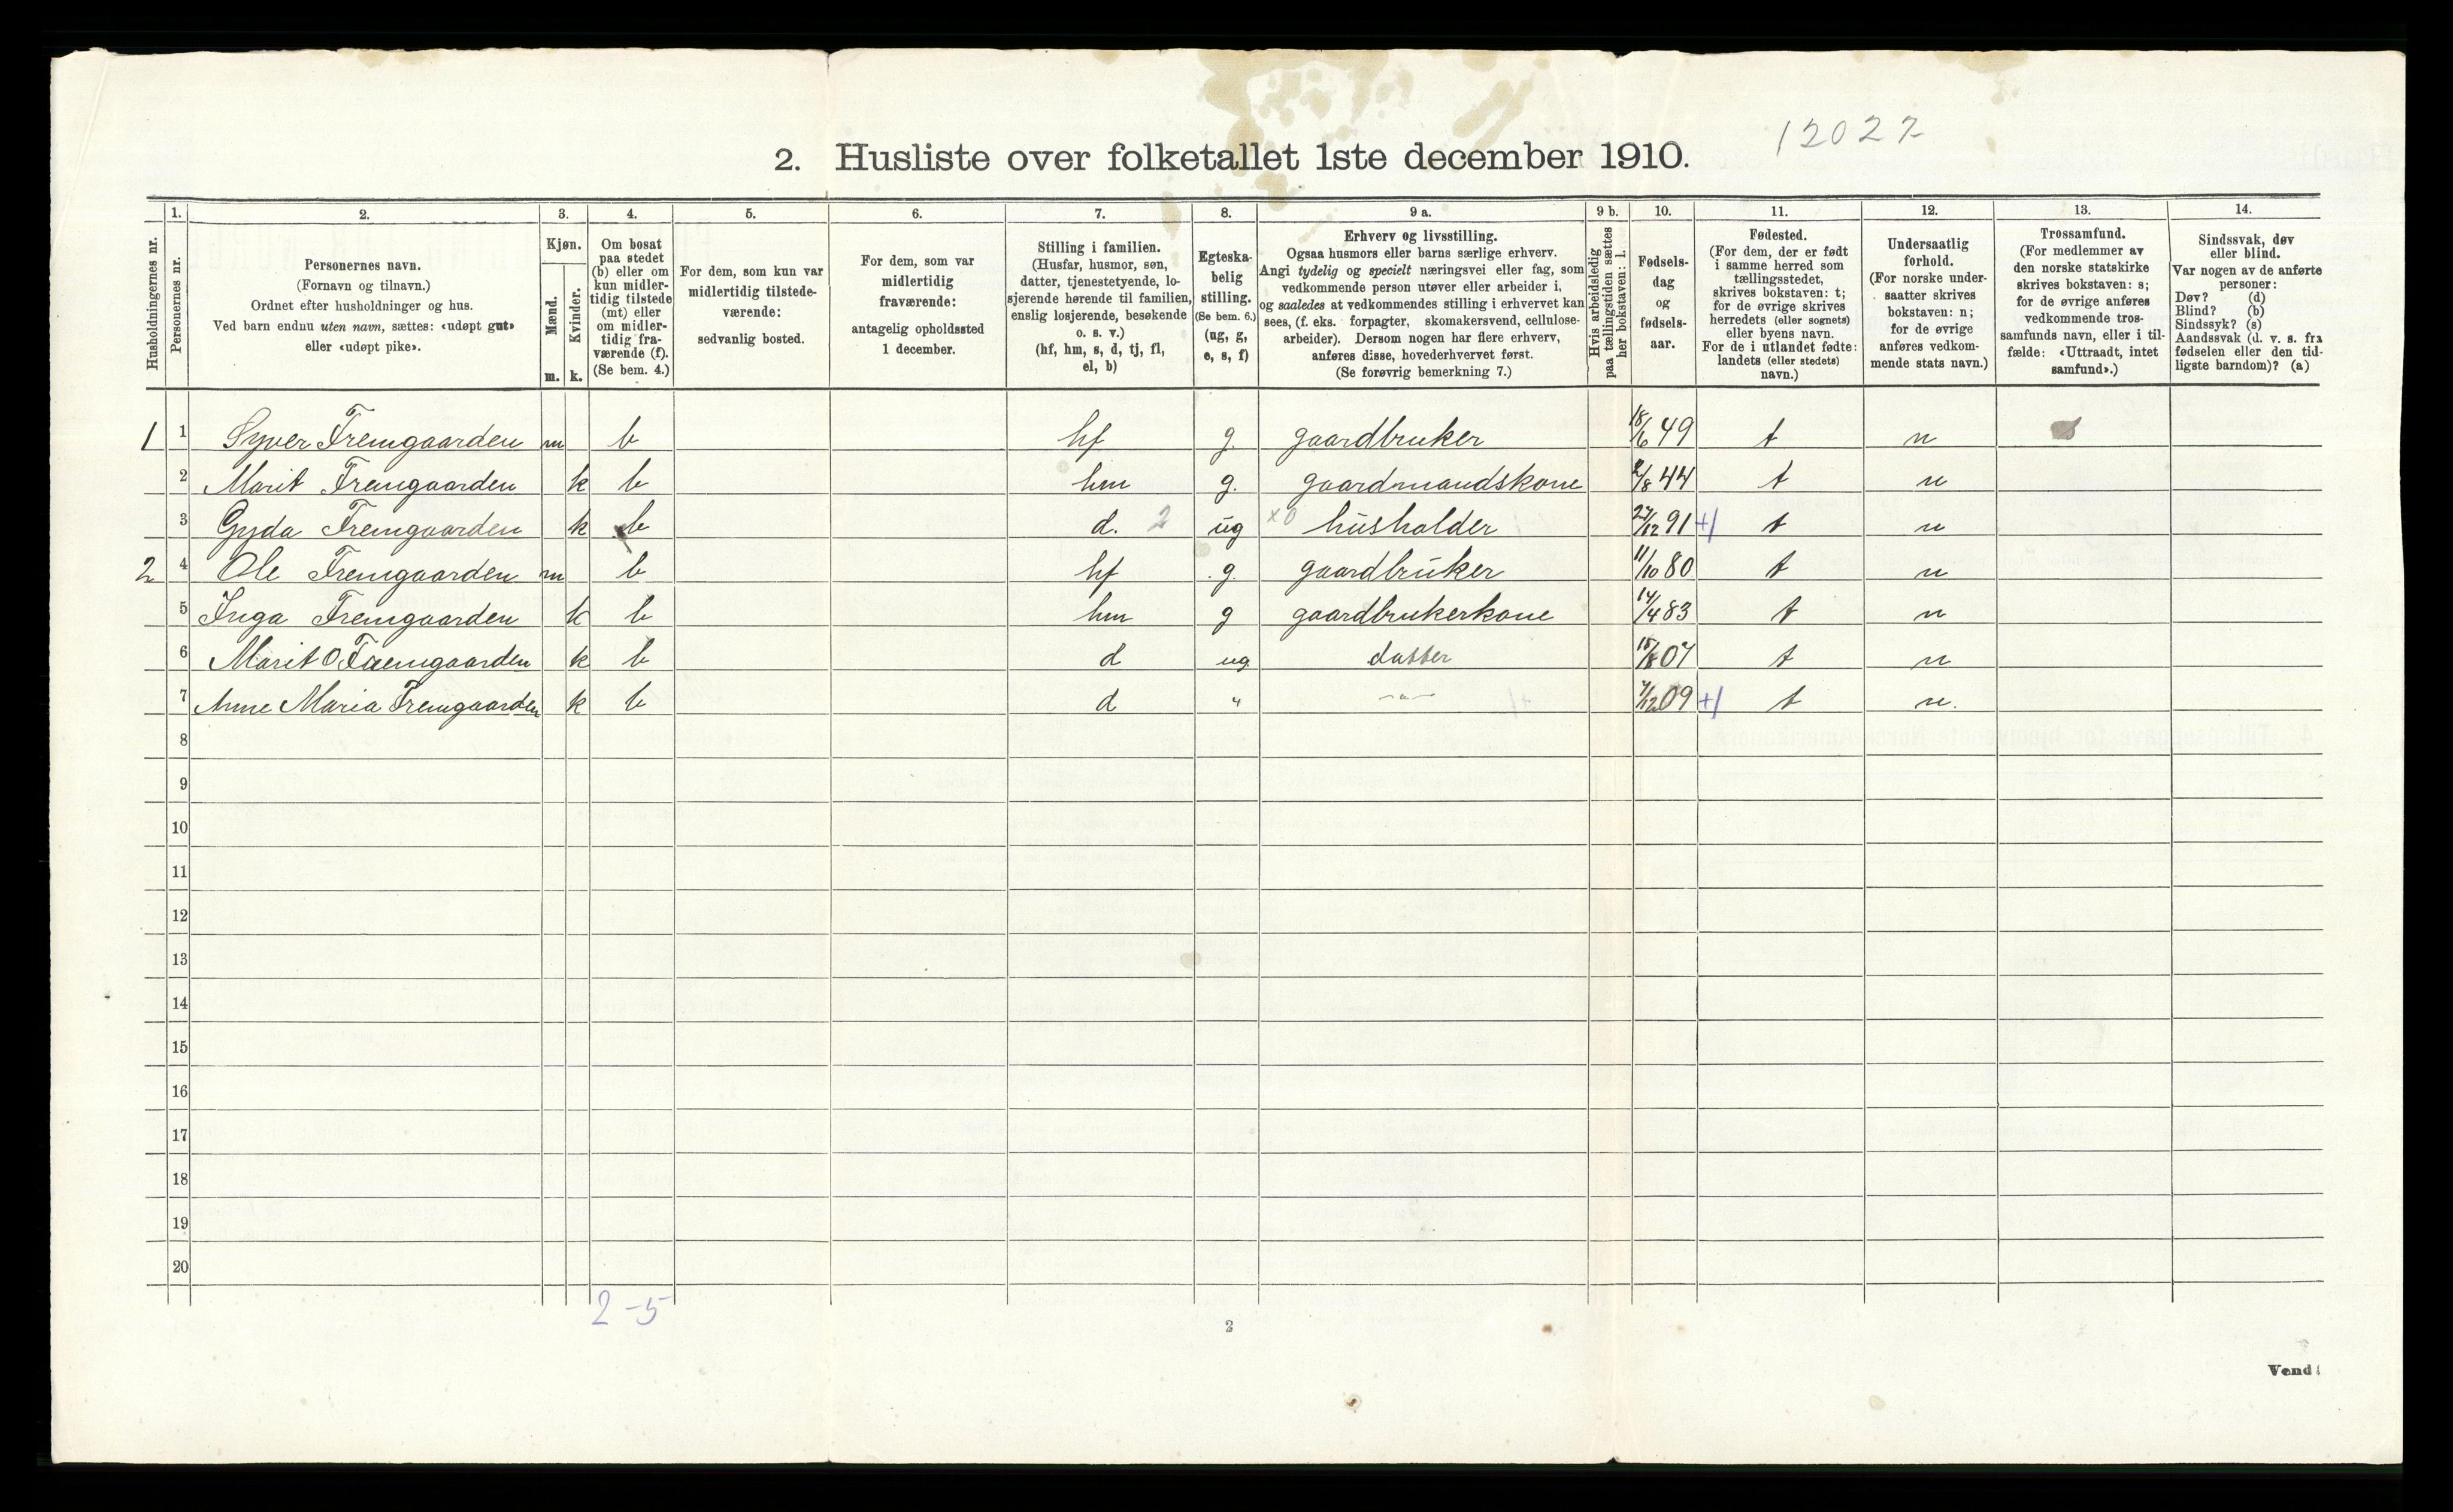 12027
2. Husliste over folketallet 1ste december 1910.
Husholdningernes nr.
1. 2. 3. 4. 5. 6. 7. 8. 9 a. 9 b. 10. 11. 12. 13. 14.
Personernes nr.
Personernes navn.
(Fornavn og tilnavn.)
Ordnet efter husholdninger og hus.
Ved barn endnu uten navn, sættes: «udøpt gut»
eller «udøpt pike».
Kjøn.
Mænd.
Kvinder.
m. k.
Om bosat
paa stedet
(b) eller om
kun midler-
tidig tilstede
(mt) eller
om midler-
tidig fra-
værende (f).
(Se bem. 4.)
For dem, som kun var
midlertidig tilstede-
værende:
sedvanlig bosted.
For dem, som var
midlertidig
fraværende:
antagelig opholdssted
1 december.
Stilling i familien.
(Husfar, husmor, søn,
datter, tjenestetyende, lo-
sjerende hørende til familien,
enslig losjerende, besøkende
o. s. v.)
(hf, hm, s, d, tj, fl,
el, b)
Egteska-
belig
stilling.
(Se bem. 6.)
(ug, g,
e, s, f)
Erhverv og livsstilling.
Ogsaa husmors eller barns særlige erhverv.
Angi tydelig og specielt næringsvei eller fag, som
vedkommende person utøver eller arbeider i,
og saaledes at vedkommendes stilling i erhvervet kan
sees, (f. eks. forpagter, skomakersvend, cellulose-
arbeider). Dersom nogen har flere erhverv,
anføres disse, hovederhvervet først.
(Se forøvrig bemerkning 7.)
Hvis arbeidsledig
paa tællingstiden sættes
her bokstaven: l.
Fødsels-
dag
og
fødsels-
aar.
Fødested.
(For dem, der er født
i samme herred som
tællingsstedet,
skrives bokstaven: t;
for de øvrige skrives
herredets (eller sognets)
eller byens navn.
For de i utlandet fødte:
landets (eller stedets)
navn.)
Undersaatlig
forhold.
(For norske under-
saatter skrives
bokstaven: n;
for de øvrige
anføres vedkom-
mende stats navn.)
Trossamfund.
(For medlemmer av
den norske statskirke
skrives bokstaven: s;
for de øvrige anføres
vedkommende tros-
samfunds navn, eller i til-
fælde: «Uttraadt, intet
samfund».)
Sindssvak, døv
eller blind.
Var nogen av de anførte
personer:
Døv? (d)
Blind? (b)
Sindssyk? (s)
Aandssvak (d. v. s. fra
fødselen eller den tid-
ligste barndom)? (a)
1 1 Syver Fremgaarden m b hf g. gaardbruker 18/6 49 t n
2 Marit Fremgaarden k b hm g. gaardmandskone 2/8 44 t n
3 Gyda Fremgaarden k b d. 2 ug x0 husholder 27/12 91 +1 t n
2 4 Ole Fremgaarden m b hf g. gaardbruker 11/10 80 t n
5 Inga Fremgaarden k b hm g gaardbrukerkone 14/4 83 t n
6 Marit O Fremgaarden k b d ug. datter 15/8 07 t n
7 Anne Maria Fremgaarden k b d " -"- 7/12 09 +1 t n.
8
9
10
11
12
13
14
15
16
17
18
19
20
2-5
2
Vend!